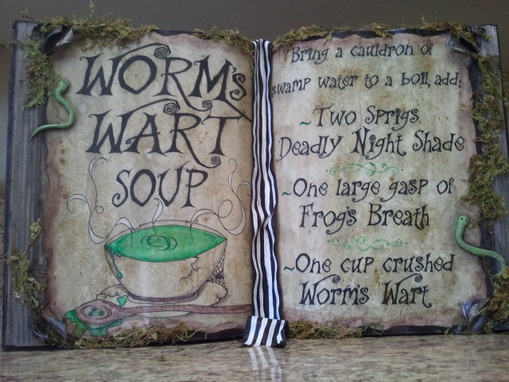 WORM'S
WART
SOUP
Bring a cauldron of
swamp water to a boil, add:
~Two Sprigs
Deadly Night Shade
~One large gasp of
Frog's Breath
~One cup crushed
Worm's Wart